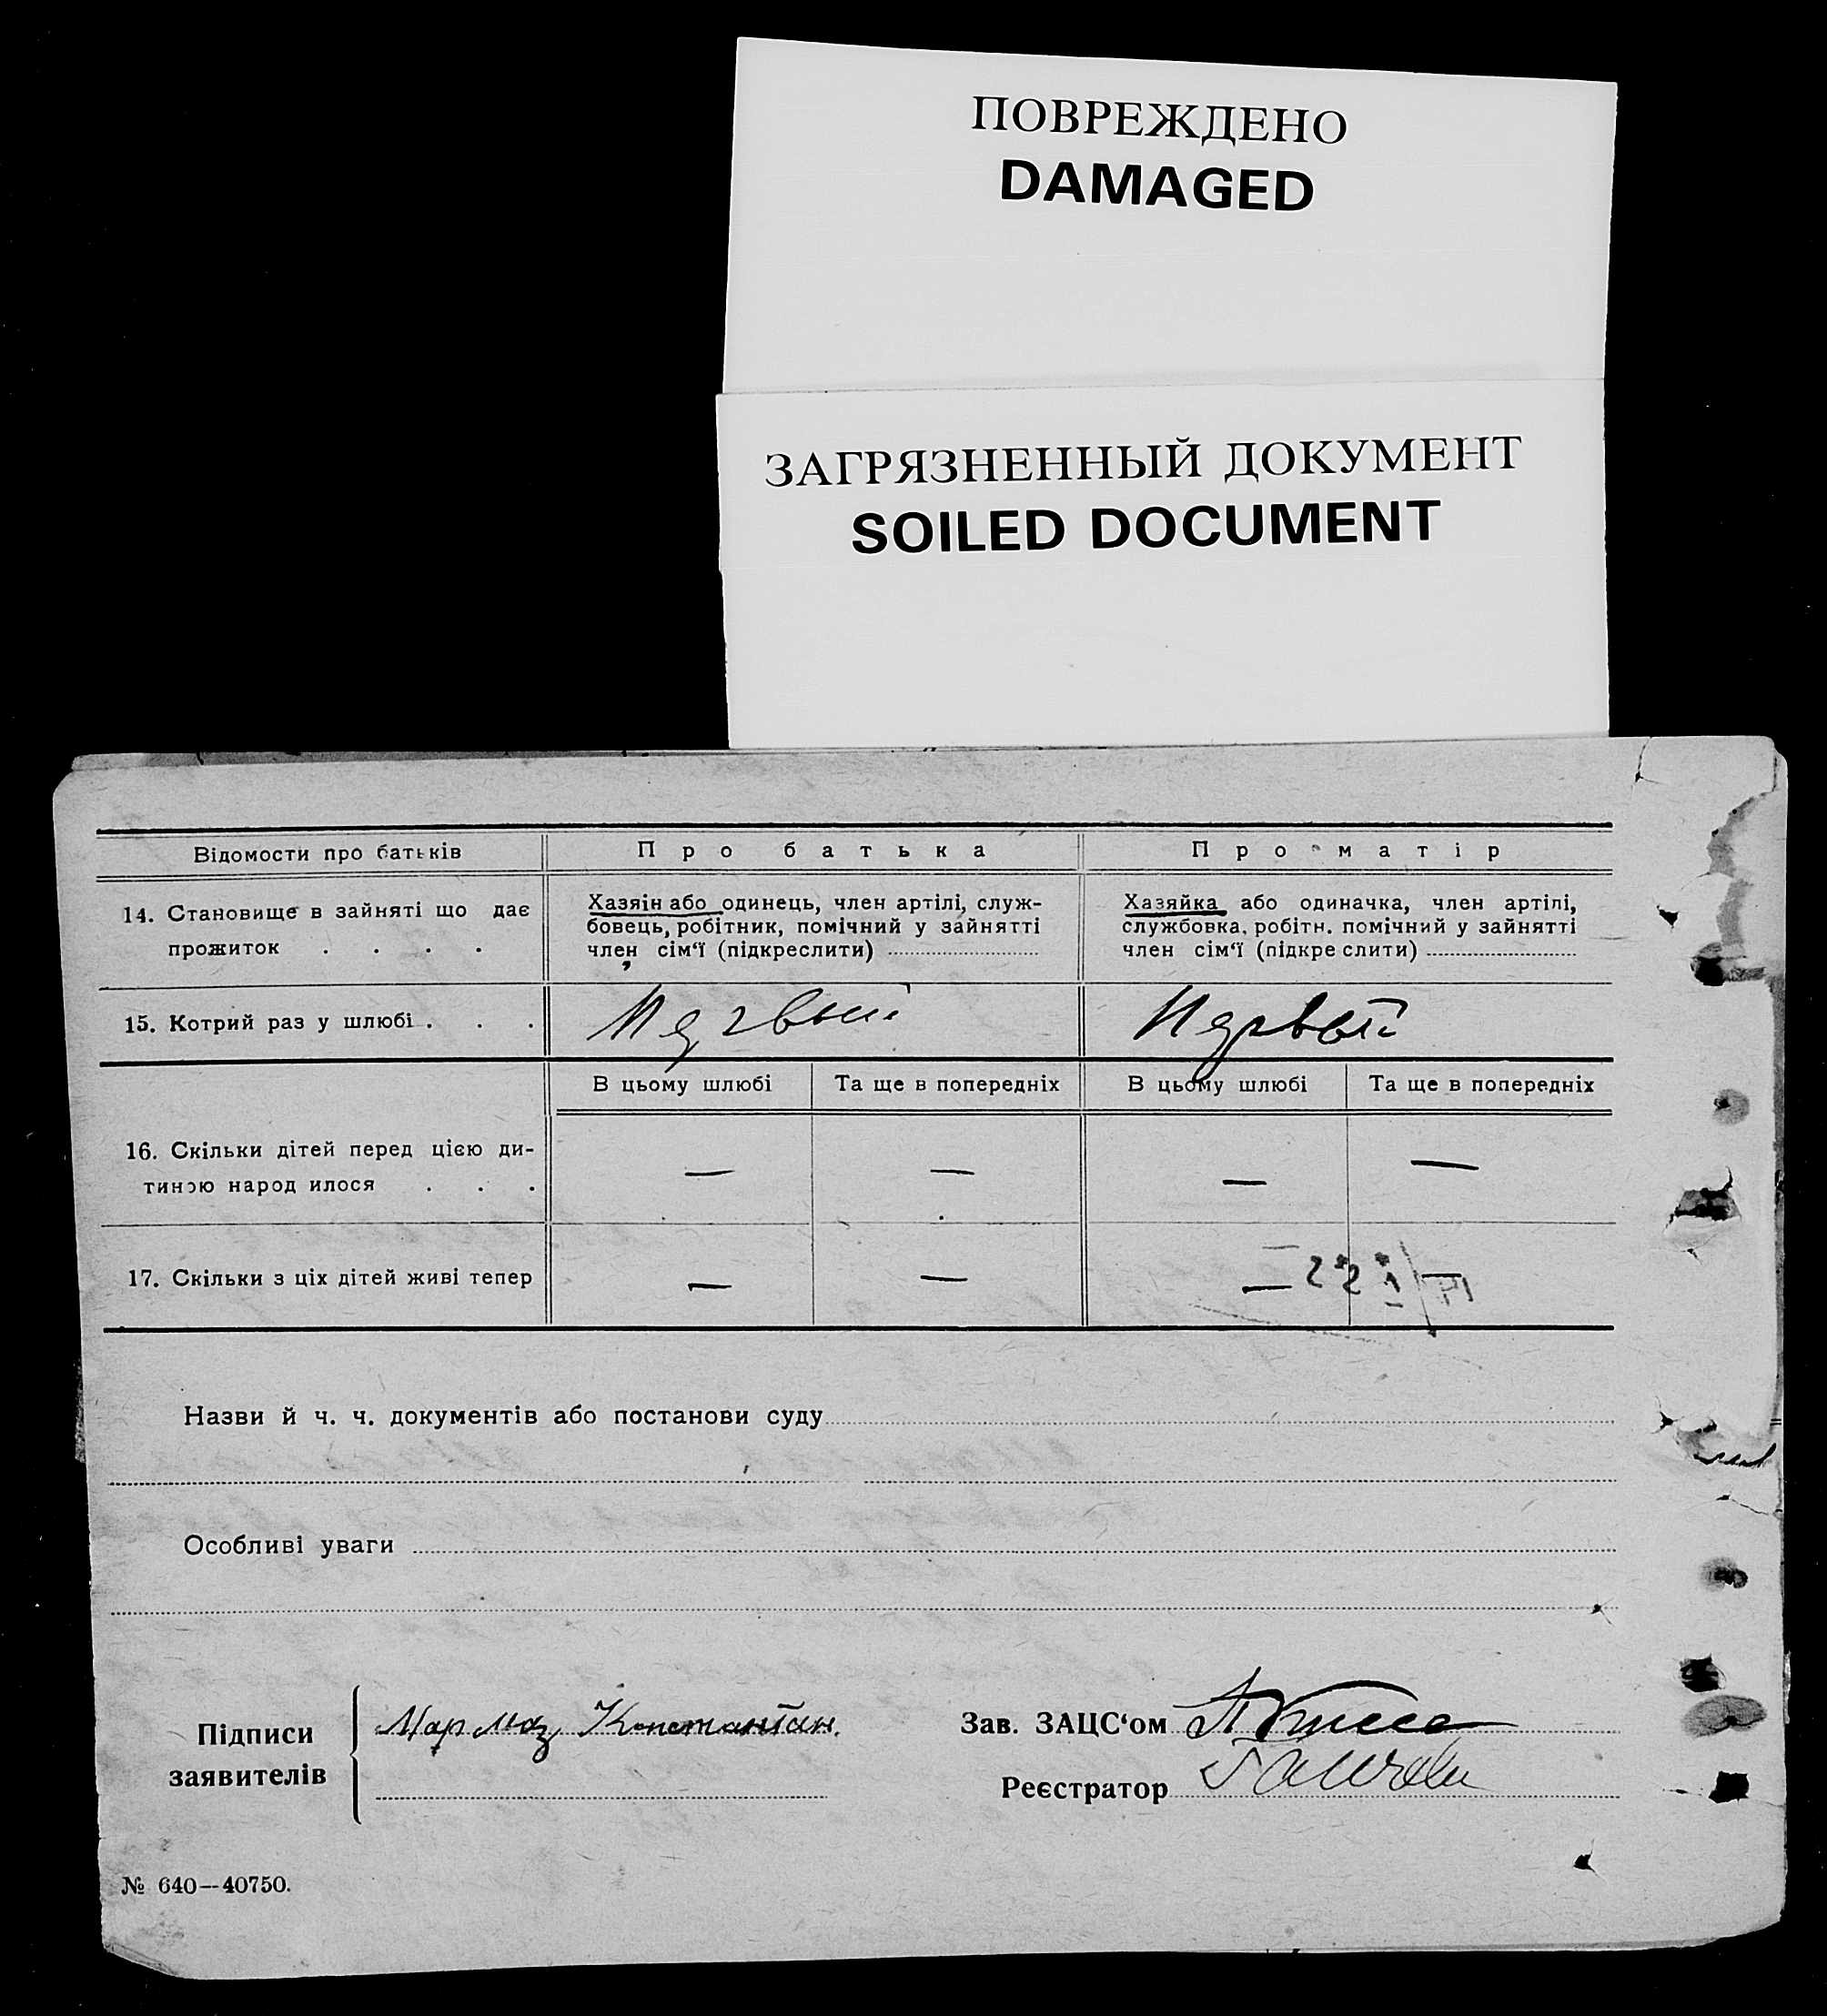 ПОВРЕЖДЕНО
DAMAGED
ЗАГРЯЗНЕННЫЙ ДОКУМЕНТ
SOILED DOCUMENT
Відомости про батьків
Про батька
Про матір
14. Становище в зайняті що дає
прожиток . . . .
Хазяін або одинець, член артілі, служ-
бовець, робітник, помічний у зайнятті
член сім‘ї (підкреслити)
Хазяйка або одиначка, член артілі,
службовка, робітн. помічний у зайнятті
член сім‘ї (підкре слити)
15. Котрий раз у шлюбі . . .
Первый
Первый
В цьому шлюбі
Та ще в попередніх
В цьому шлюбі
Та ще в попередніх
16. Скільки дітей перед цією ди-
тиною народ илося . . .
— — — —
17. Скільки з ціх дітей живі тепер
— — — —
Назви й ч. ч. документів або постанови суду
Особливі уваги
Підписи
заявителів
Мармаз Константин.
Зав. ЗАЦС‘ом
Реєстратор
№ 640—40750.